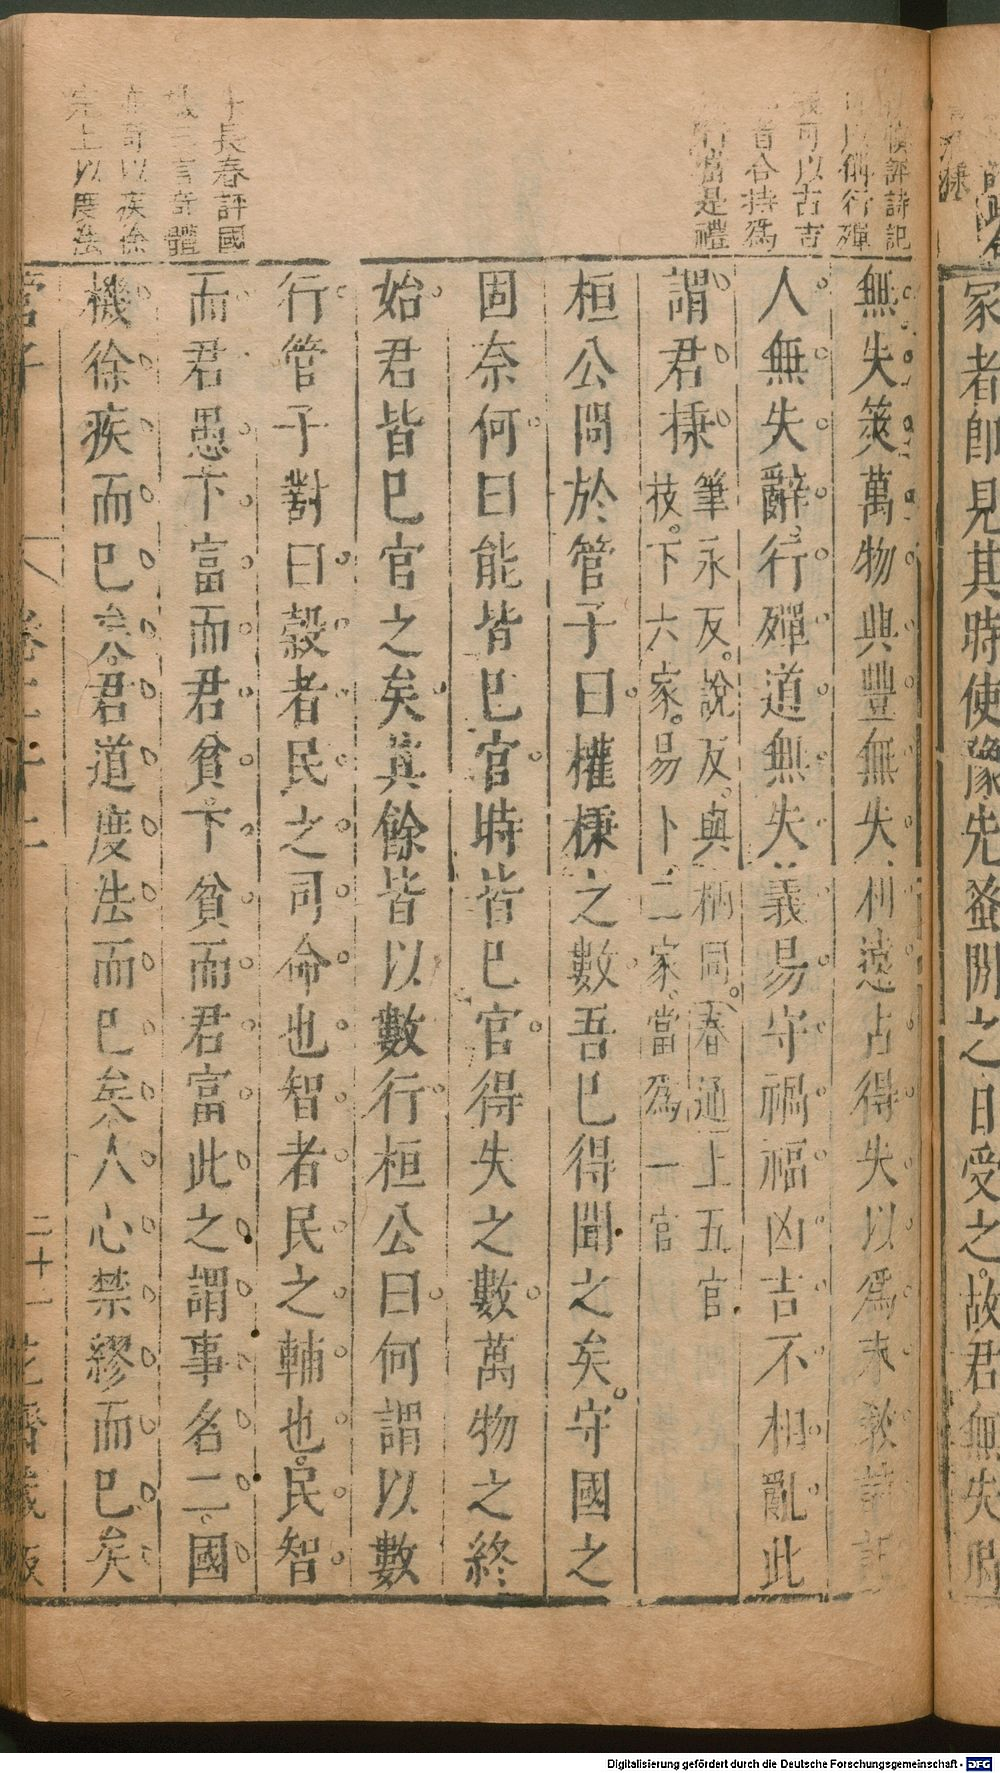 家者即見其時使豫先蚤閑之日受之故君無失時
無失筴萬物興豐無失利遠占得失以爲末敎詩記
人無失辭行殫道無失義易守禍福凶吉不相亂此
謂君棅
筆永反。說反。與柄同。春通上五官
技。下六家。易卜二家。當爲一官
桓公問於管子曰權棅之數吾已得聞之矣守國之
固奈何曰能皆已官時皆已官得失之數萬物之終
始君皆已官之矣其餘皆以數行桓公曰何謂以數
行管子對曰穀者民之司命也智者民之輔也民智
而君愚下富而君貧下貧而君富此之謂事名二國
機徐疾而已矣君道度法而已矣人心禁繆而已矣
評詩記
行殫
可以古吉
者合持爲
當是禮
長春評國
言奇體
奇以疾徐
上以度法
管子
卷二十二
二十一
花齋藏板
Digitalisierung gefördert durch die Deutsche Forschungsgemeinschaft - DFG